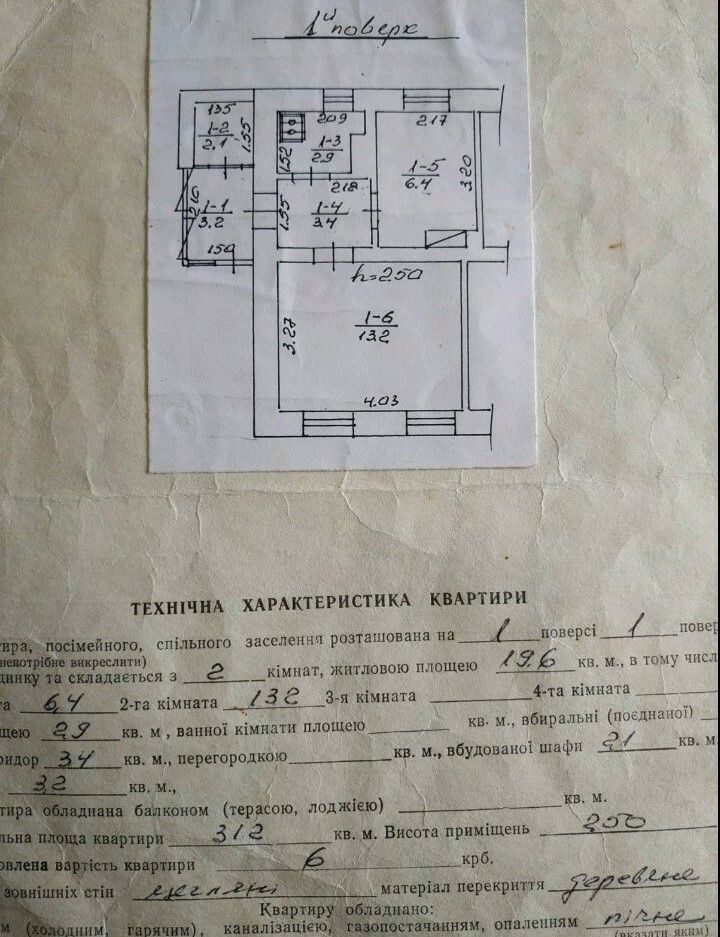 1й поверх
135
1-2
2.1
1.55
2.09
1-3
2.9
1.52
2.17
1-5
6.4
3.20
2.16
1-1
3.2
150
2.18
1-4
3.4
1.55
h=2.50
1-6
13.2
3.27
4.03
ТЕХНІЧНА ХАРАКТЕРИСТИКА КВАРТИРИ
тира, посімейного, спільного заселення розташована на 1 поверсі 1 повер
непотрібне викреслити)
динку та складається з 2 кімнат, житловою площею 19.6 кв. м., в тому числ
та 6,4 2-га кімната 13.2 3-я кімната 4-та кімната
щею 2,9 кв. м, ванної кімнати площею кв. м., вбиральні (поєднаної)
ридор 3,4 кв. м., перегородкою кв. м., вбудованої шафи 2,1 кв. м
3,2 кв. м.,
тира обладнана балконом (терасою, лоджією) кв. м.
льна площа квартири 31.2 кв. м. Висота приміщень 2,50
овлена вартість квартири 6 крб.
зовнішніх стін цегляні матеріал перекриття деревяне
Квартиру обладнано:
м (холодним, гарячим), каналізацією, газопостачанням, опаленням пічне
(вказати яким)